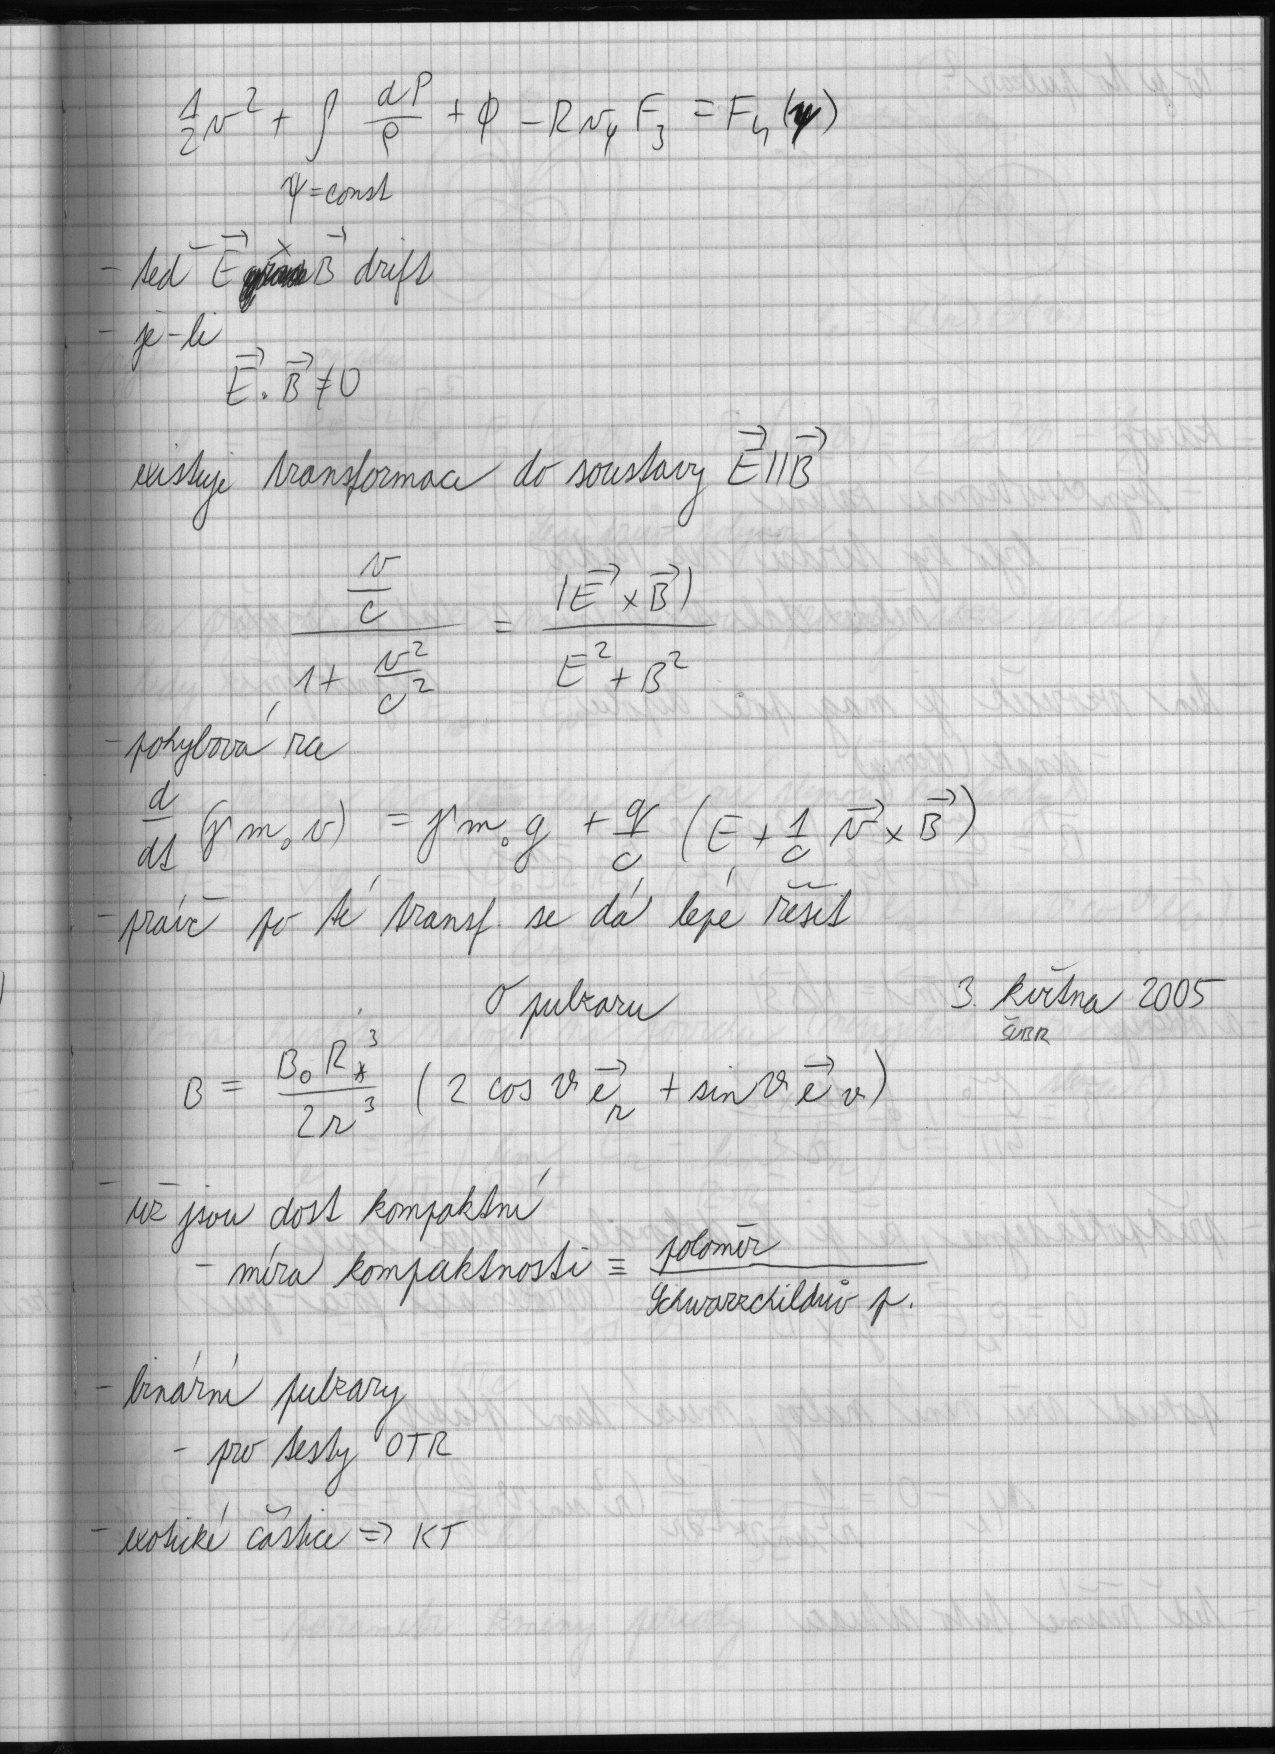 1/2 v² + ∫ dP/ρ + ϕ - R v_φ F₃ = F₄(ψ)
ψ=const
- teď E⃗ × B⃗ drift
- je-li
E⃗ . B⃗ ≠ 0
existuje transformace do soustavy E⃗ || B⃗
(v/c)/(1 + v²/c²) = |E⃗ × B⃗|/(E² + B²)
- pohybová rce
d/dt (γ m₀ v) = γ m₀ g + q/c (E + 1/c v⃗ × B⃗)
- právě po té transf. se dá lépe řešit
O pulzaru 3. května 2005
ŠUBR
B = B₀ R⁎³/2r³ (2 cos ϑ e⃗_r + sin ϑ e⃗_ϑ)
- už jsou dost kompaktní
- míra kompaktnosti ≡ poloměr/Schwarzchildův p.
- binární pulzary
- pro testy OTR
- exotické částice ⇒ KT